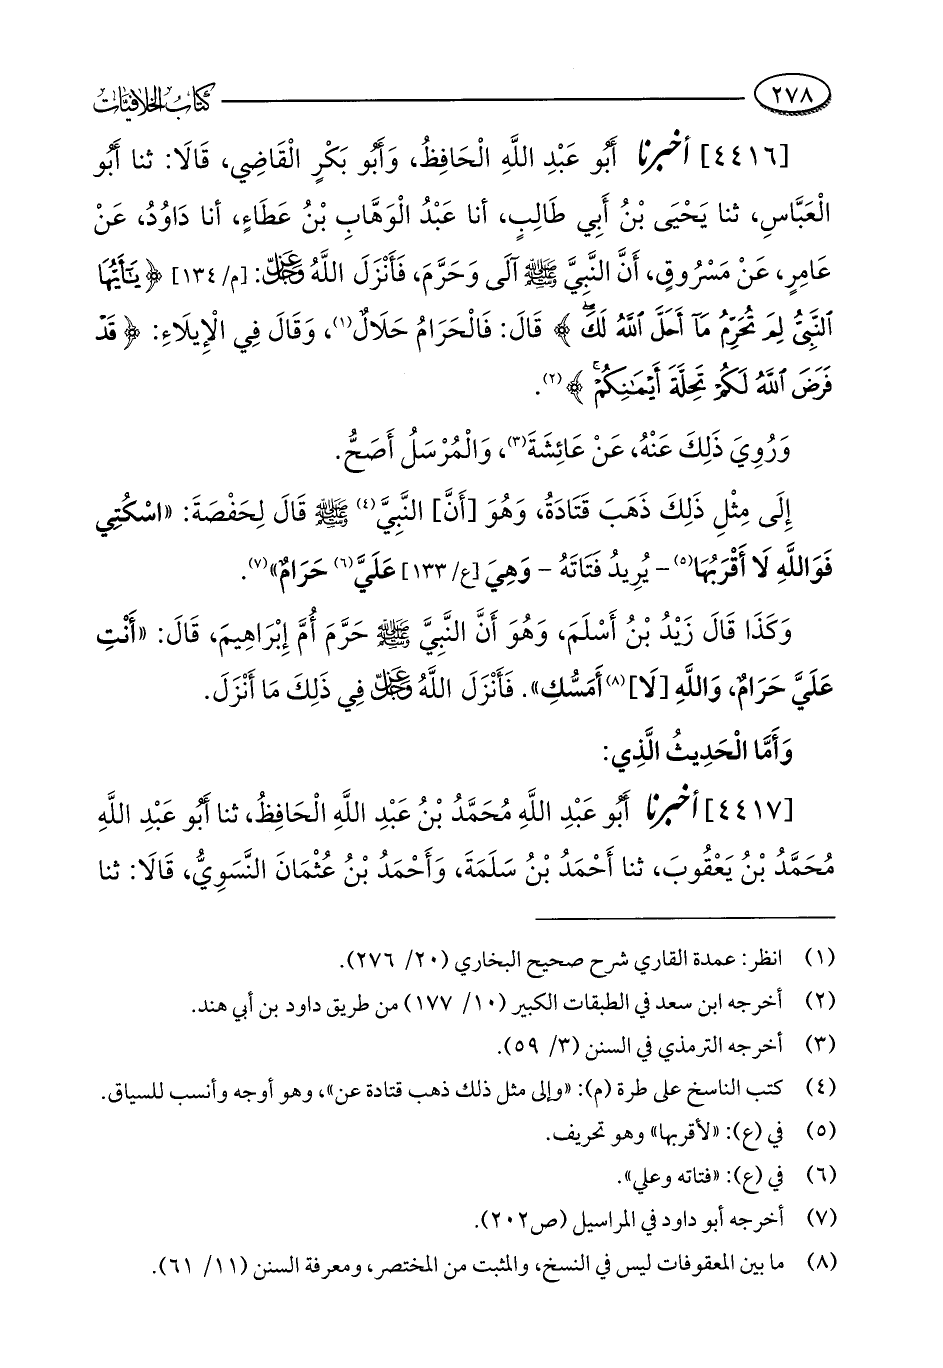 ٢٧٨ كتاب الخلافيات
[٤٤١٦] أخبرنا أَبُو عَبْدِ اللَّهِ الْحَافِظُ، وَأَبُو بَكْرٍ الْقَاضِي، قَالَا: ثنا أَبُو
الْعَبَّاسِ، ثنا يَحْيَى بْنُ أَبِي طَالِبٍ، أنا عَبْدُ الْوَهَّابِ بْنُ عَطَاءٍ، أنا دَاوُدُ، عَنْ
عَامِرٍ، عَنْ مَسْرُوقٍ، أَنَّ النَّبِيَّ ﷺ آلَى وَحَرَّمَ، فَأَنْزَلَ اللَّهُ عَزَّ وَجَلَّ: [م/١٣٤] ﴿يَٰٓأَيُّهَا
ٱلنَّبِىُّ لِمَ تُحَرِّمُ مَآ أَحَلَّ ٱللَّهُ لَكَۖ﴾ قَالَ: فَالْحَرَامُ حَلَالٌ(١)، وَقَالَ فِي الْإِيلَاءِ: ﴿قَدْ
فَرَضَ ٱللَّهُ لَكُمْ تَحِلَّةَ أَيْمَٰنِكُمْۚ﴾(٢).
وَرُوِيَ ذَلِكَ عَنْهُ، عَنْ عَائِشَةَ(٣)، وَالْمُرْسَلُ أَصَحُّ.
إِلَى مِثْلِ ذَلِكَ ذَهَبَ قَتَادَةُ، وَهُوَ [أَنَّ] النَّبِيَّ(٤) ﷺ قَالَ لِحَفْصَةَ: «اسْكُتِي
فَوَاللَّهِ لَا أَقْرَبُهَا(٥) - يُرِيدُ فَتَاتَهُ - وَهِيَ [ع/١٣٣] عَلَيَّ(٦) حَرَامٌ»(٧).
وَكَذَا قَالَ زَيْدُ بْنُ أَسْلَمَ، وَهُوَ أَنَّ النَّبِيَّ ﷺ حَرَّمَ أُمَّ إِبْرَاهِيمَ، قَالَ: «أَنْتِ
عَلَيَّ حَرَامٌ، وَاللَّهِ [لَا](٨) أَمَسُّكِ». فَأَنْزَلَ اللَّهُ عَزَّ وَجَلَّ فِي ذَلِكَ مَا أَنْزَلَ.
وَأَمَّا الْحَدِيثُ الَّذِي:
[٤٤١٧] أخبرنا أَبُو عَبْدِ اللَّهِ مُحَمَّدُ بْنُ عَبْدِ اللَّهِ الْحَافِظُ، ثنا أَبُو عَبْدِ اللَّهِ
مُحَمَّدُ بْنُ يَعْقُوبَ، ثنا أَحْمَدُ بْنُ سَلَمَةَ، وَأَحْمَدُ بْنُ عُثْمَانَ النَّسَوِيُّ، قَالَا: ثنا
(١) انظر: عمدة القاري شرح صحيح البخاري (٢٠/ ٢٧٦).
(٢) أخرجه ابن سعد في الطبقات الكبير (١٠/ ١٧٧) من طريق داود بن أبي هند.
(٣) أخرجه الترمذي في السنن (٣/ ٥٩).
(٤) كتب الناسخ على طرة (م): «وإلى مثل ذلك ذهب قتادة عن»، وهو أوجه وأنسب للسياق.
(٥) في (ع): «لأقربها» وهو تحريف.
(٦) في (ع): «فتاته وعلي».
(٧) أخرجه أبو داود في المراسيل (ص٢٠٢).
(٨) ما بين المعقوفات ليس في النسخ، والمثبت من المختصر، ومعرفة السنن (١١/ ٦١).